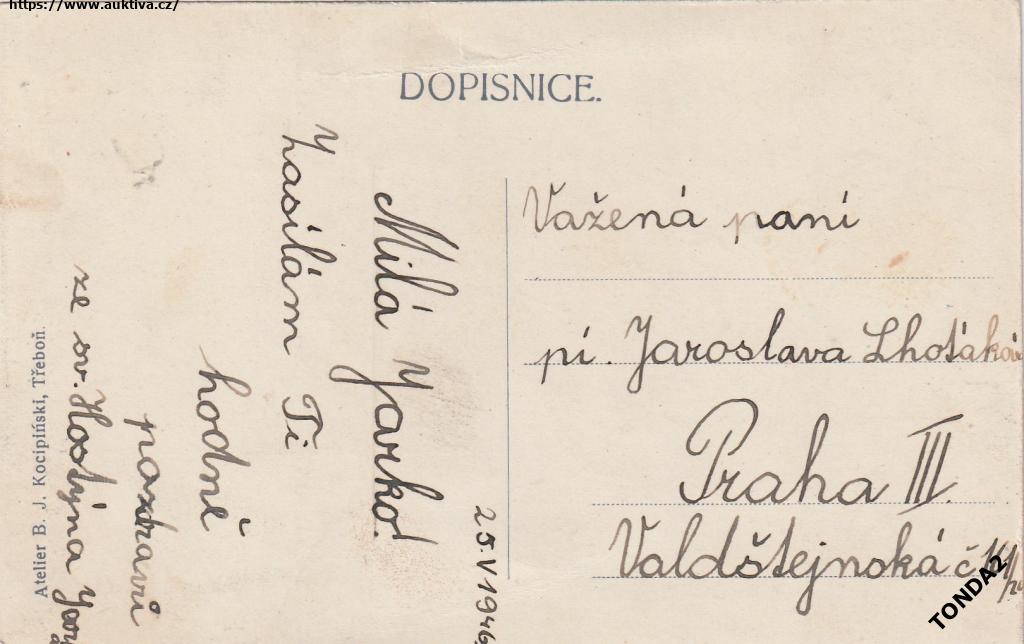 https://www.auktiva.cz/
DOPISNICE.
25.V 1946
Milá Jarko!
Zasílám Ti
hodně
pozdravů
ze sv. Hostýna
Atelier B. J. Kocipiński, Třeboň.
Vážená paní
pí. Jaroslava Lhotáková
Praha III.
Valdštejnská č.
TONDA2